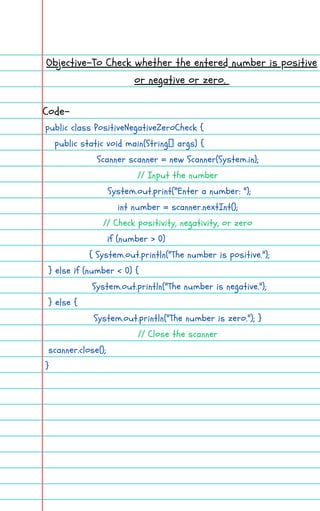 Objective-To Check whether the entered number is positive
or negative or zero.
Code-
public class PositiveNegativeZeroCheck {
public static void main(String[] args) {
Scanner scanner = new Scanner(System.in);
// Input the number
System.out.print("Enter a number: ");
int number = scanner.nextInt();
// Check positivity, negativity, or zero
if (number > 0)
{ System.out.println("The number is positive.");
} else if (number < 0) {
System.out.println("The number is negative.");
} else {
System.out.println("The number is zero."); }
// Close the scanner
scanner.close();
}